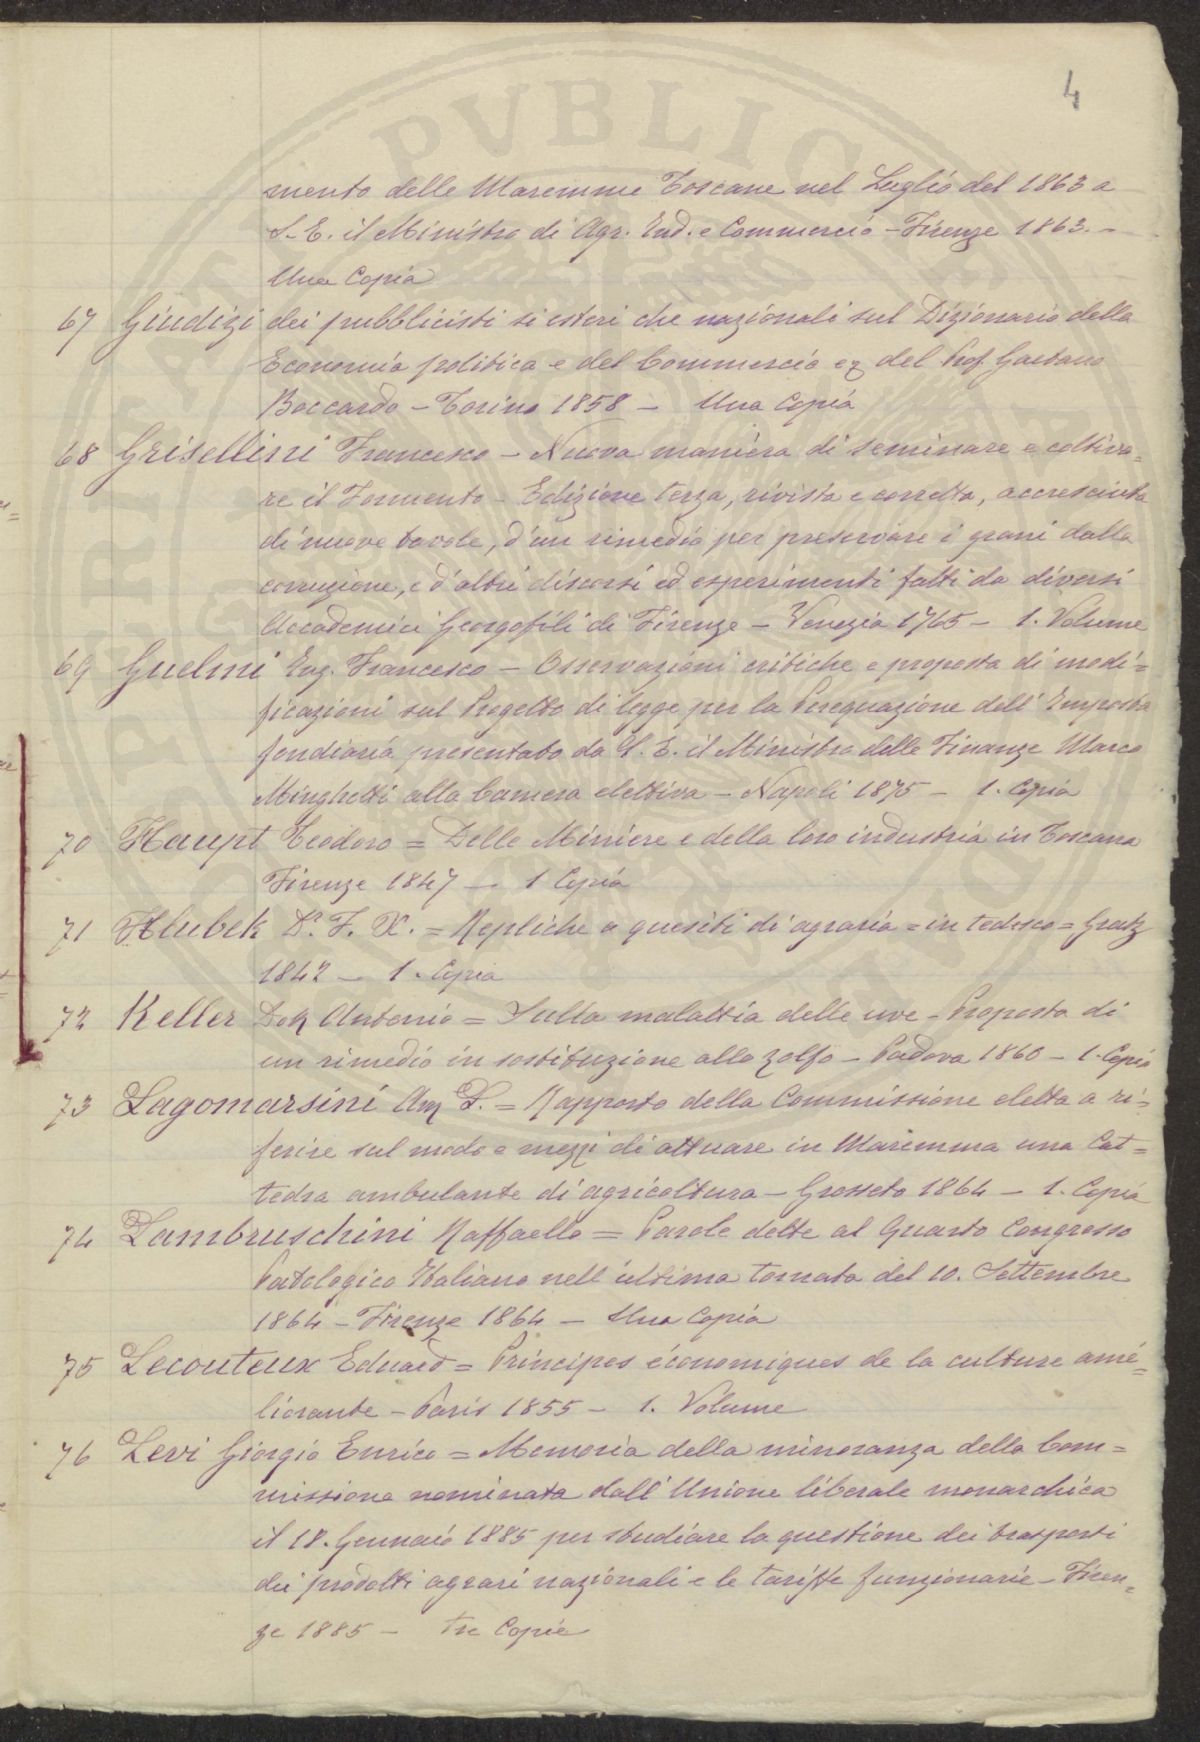 4
mento delle Maremme Toscane nel Luglio del 1863 a
S. E. il Ministro di Agr. Ind. e Commercio - Firenze 1863. -
Una Copia
67 Giudizi dei pubblicisti si esteri che nazionali sul Dizionario della
Economia politica e del Commercio del Prof. Gaetano
Boccardo - Torino 1858 - Una Copia
68 Grisellini Francesco - Nuova maniera di seminare e coltiva=
re il Formento - Edizione terza, rivista e corretta, accresciuta
di nuove tavole, d'un rimedio per preservare i grani dalla
corruzione, e d'altri discorsi ed esperimenti fatti da diversi
Accademici Georgofili di Firenze - Venezia 1765 - 1. Volume
69 Guelmi Ing. Francesco - Osservazioni critiche e proposta di modi=
ficazioni sul Progetto di legge per la Perequazione dell' Imposta
fondiaria presentato da S. E. il Ministro delle Finanze Marco
Minghetti alla Camera elettiva - Napoli 1875 - 1. Copia
70 Haupt Teodoro = Delle Miniere e della loro industria in Toscana
Firenze 1847 - 1 Copia
71 Hlubek Dr. F. X. = Repliche a quesiti di agraria = in tedesco = Gratz
1842 - 1. Copia
72 Keller Antonio = Sulla malattia delle uve - Proposta di
un rimedio in sostituzione allo zolfo - Padova 1860 - 1. Copia
73 Lagomarsini L. = Rapporto della Commissione eletta a ri=
ferire sul modo e mezzi di attuare in Maremma una Cat=
tedra ambulante di agricoltura - Grosseto 1864 - 1. Copia
74 Lambruschini Raffaello = Parole dette al Quarto Congresso
Patologico Italiano nell' ultima tornata del 10. Settembre
1864 - Firenze 1864 - Una Copia
75 Lecouteux Eduard = Principes économiques de la culture amé=
liorante - Paris 1855 - 1. Volume
76 Levi Giorgio Enrico = Memoria della minoranza della Com=
missione nominata dall' Unione liberale monarchica
il 18. Gennaio 1885 per studiare la questione dei trasporti
dei prodotti agrari nazionali e le tariffe funzionarie - Firen=
ze 1885 - tre Copie